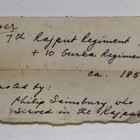 7th Rajput Regiment
+ 10 Gurka Regimen
ca. 185
Philip Sainsbury, who
served in the Rajpu